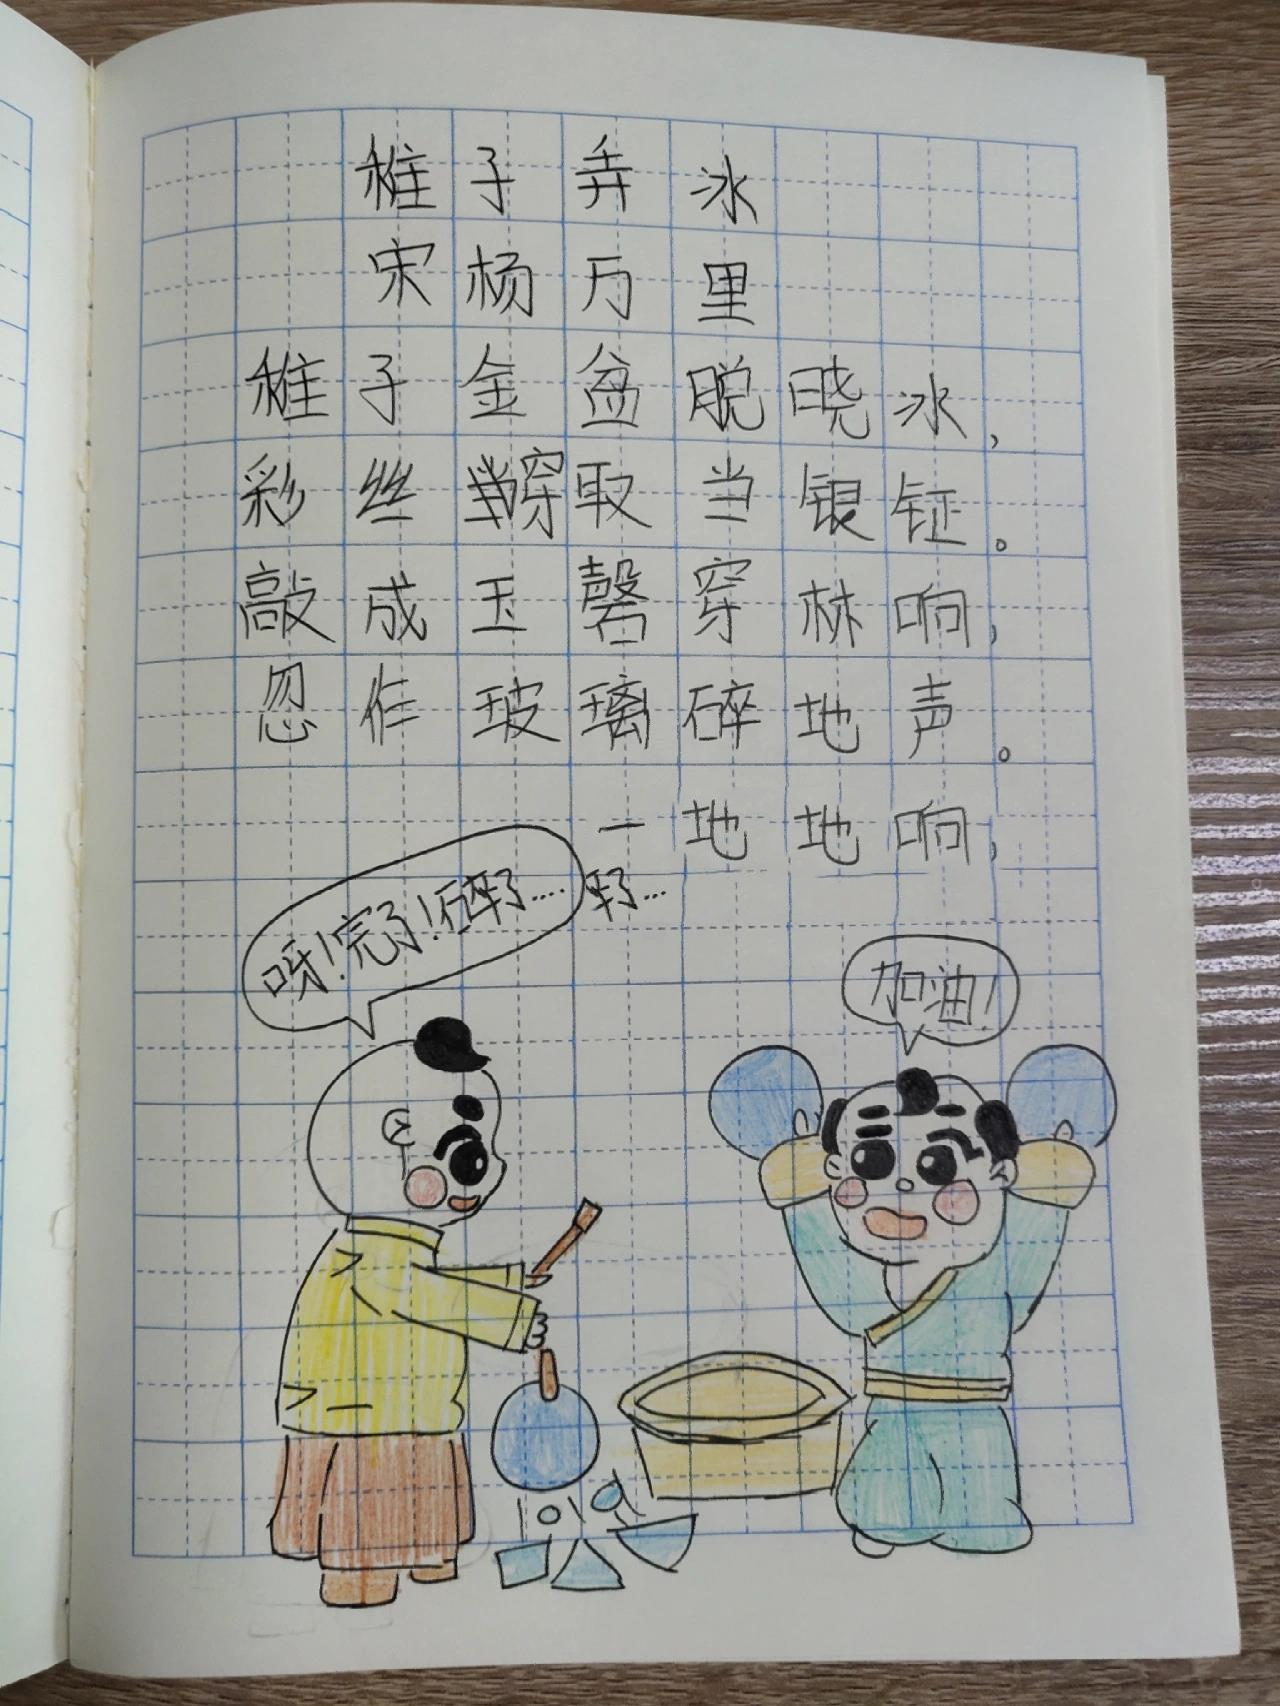 稚子弄冰
宋杨万里
稚子金盆脱晓冰，
彩丝穿取当银钲。
敲成玉磬穿林响，
忽作玻璃碎地声。
一地地响，
呀！完了！碎了....
了...
加油！